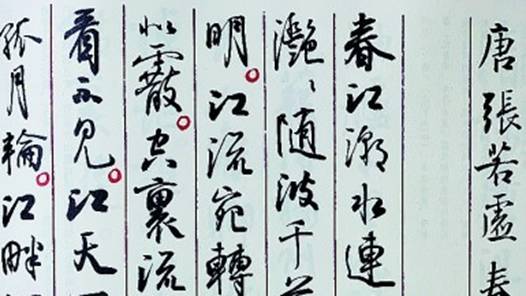 唐張若虛春
春江潮水連
灩〻随波千
明。江流宛轉
似霰。空裏流
看不見。江天
孤月輪。江畔